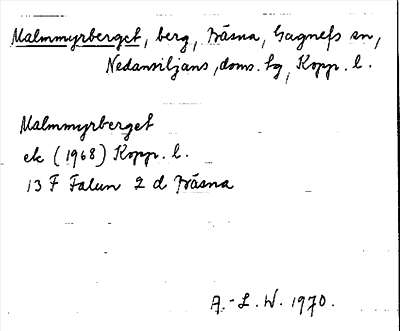 Malmmyrberget, berg, Bäsna, Gagnefs sn,
Nedansiljans, doms. tg, Kopp. l.
Malmmyrberget
ek (1968) Kopp. l.
13 F Falun 2 d Bäsna
A.-L. W. 1970.